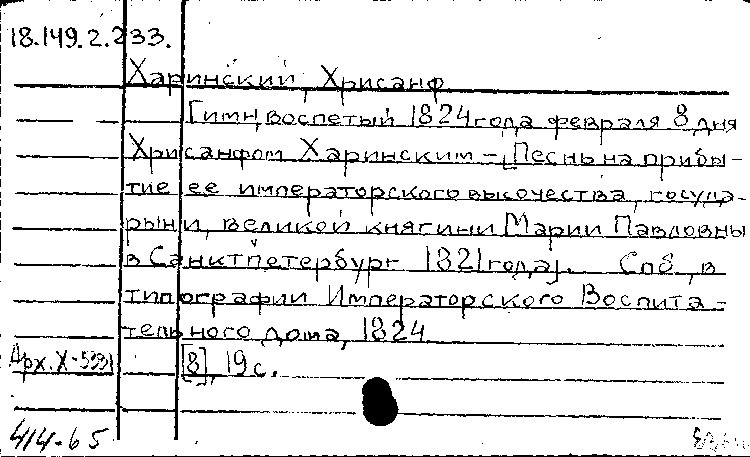 18.149.2.233.
Харинский, Хрисанф
Гимн, воспетый 1824 года февраля 8 дня
Хрисанфом Харинским – [Песнь на прибы-
тие ее императорского высочества, госуда-
рыни, великой княгини Марии Павловны
в Санктпетербург 1821 года]. Спб, в
типографии Императорского Воспита-
тельного дома, 1824
Арх. X-5331 [8], 19 с.
414-65